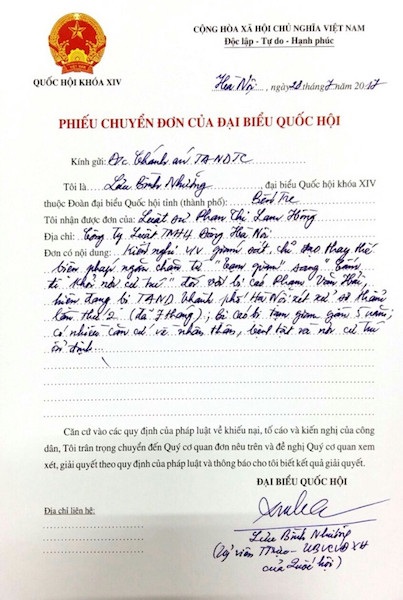 CỘNG HÒA XÃ HỘI CHỦ NGHĨA VIỆT NAM
Độc lập - Tự do - Hạnh phúc
QUỐC HỘI KHÓA XIV
Hà Nội, ngày 21 tháng 7 năm 2017
PHIẾU CHUYỂN ĐƠN CỦA ĐẠI BIỂU QUỐC HỘI
Kính gửi: Đ/c Chánh án TANDTC
Tôi là Lưu Bình Nhưỡng, đại biểu Quốc hội khóa XIV
thuộc Đoàn đại biểu Quốc hội tỉnh (thành phố): Bến Tre
Tôi nhận được đơn của: Luật sư Phan Thị Lam Hồng
Địa chỉ: Công ty Luật TNHH Đông Hà Nội
Đơn có nội dung: Kiến nghị giám sát, chỉ đạo thay thế
biện pháp ngăn chặn từ "tạm giam" sang "Cấm
đi khỏi nơi cư trú" đối với bị cáo Phạm Văn Hải,
hiện đang bị TAND thành phố Hà Nội xét xử sơ thẩm
lần thứ 2 (đã 7 tháng); bị cáo bị tạm giam gần 5 năm;
có nhiều căn cứ về nhân thân, bệnh tật và nơi cư trú
ổn định...
Căn cứ vào các quy định của pháp luật về khiếu nại, tố cáo và kiến nghị của công
dân, Tôi trân trọng chuyển đến Quý cơ quan đơn nêu trên và đề nghị Quý cơ quan xem
xét, giải quyết theo quy định của pháp luật và thông báo cho tôi biết kết quả giải quyết.
ĐẠI BIỂU QUỐC HỘI
Địa chỉ liên hệ:
Lưu Bình Nhưỡng
(Ủy viên TTrực - UBVCVĐXH
của Quốc hội)